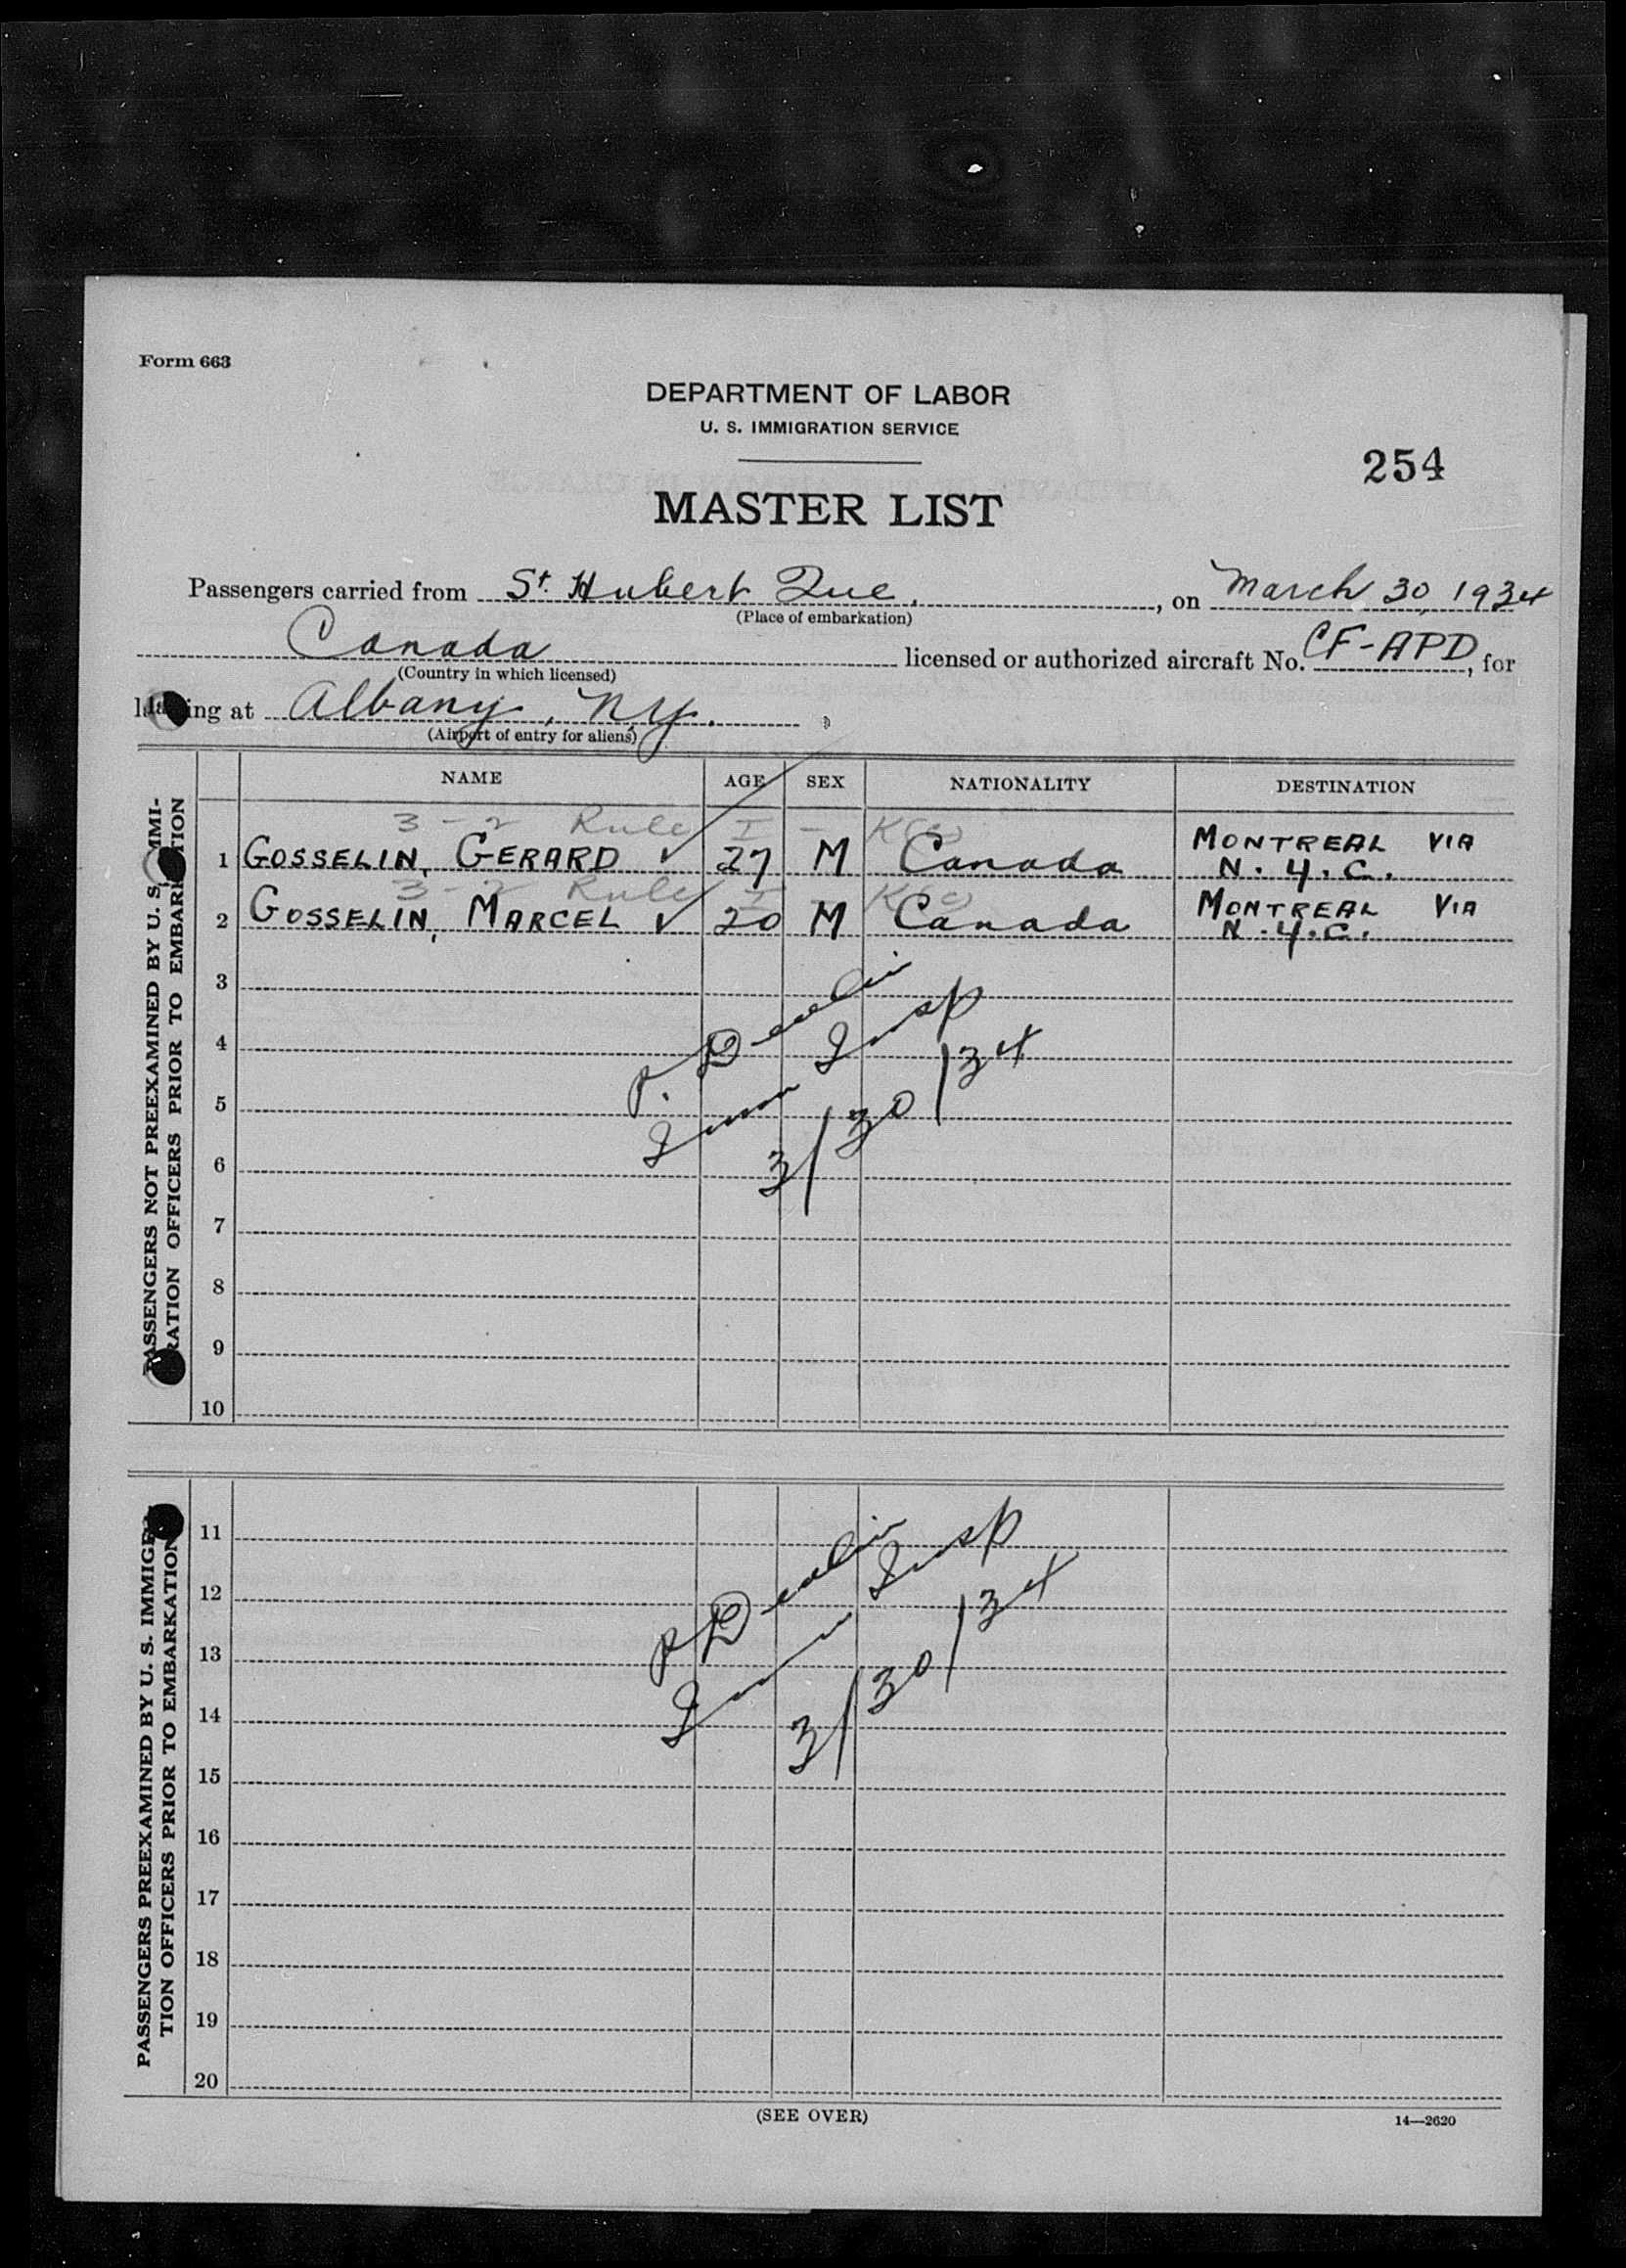 Form 663
DEPARTMENT OF LABOR
U. S. IMMIGRATION SERVICE
254
MASTER LIST
Passengers carried from St. Hubert Que. , on March 30, 1934
(Place of embarkation)
Canada licensed or authorized aircraft No. CF-APD, for
(Country in which licensed)
ing at Albany, N.Y.
(Airport of entry for aliens)
NAME AGE SEX NATIONALITY DESTINATION
3-2 Rule I -
1 GOSSELIN, GERARD ✓ 27 M Canada MONTREAL VIA N.Y.C.
3-2 Rule I
2 GOSSELIN, MARCEL ✓ 20 M Canada MONTREAL VIA N.Y.C.
3
4
5
6
7
8
9
10
PASSENGERS NOT PREEXAMINED BY U. S. IMMI-
RATION OFFICERS PRIOR TO EMBARKATION
P.
Imm Insp
3/30/34
11
12
13
14
15
16
17
18
19
20
PASSENGERS PREEXAMINED BY U. S. IMMIGRA-
TION OFFICERS PRIOR TO EMBARKATION
P
Imm Insp
3/30/34
(SEE OVER)
14—2620